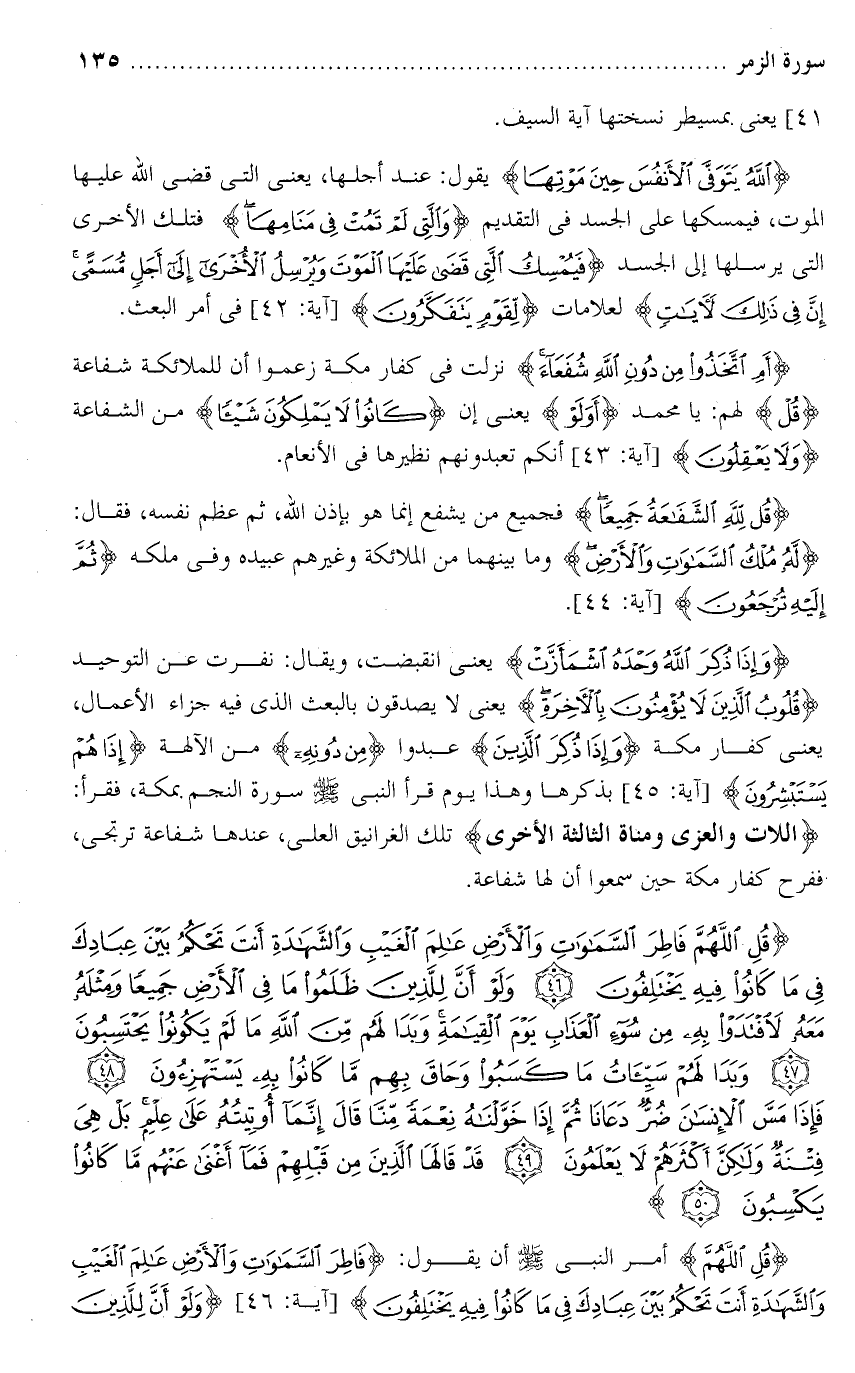 سورة الزمر ........................................................................... ١٣٥
٤١] يعنى بمسيطر نسختها آية السيف.
﴿ٱللَّهُ يَتَوَفَّى ٱلْأَنفُسَ حِينَ مَوْتِهَا﴾ يقول: عند أجلها، يعنى التى قضى الله عليها
الموت، فيمسكها على الجسد فى التقديم ﴿وَٱلَّتِى لَمْ تَمُتْ فِى مَنَامِهَاۖ﴾ فتلك الأخرى
التى يرسلها إلى الجسد ﴿فَيُمْسِكُ ٱلَّتِى قَضَىٰ عَلَيْهَا ٱلْمَوْتَ وَيُرْسِلُ ٱلْأُخْرَىٰٓ إِلَىٰٓ أَجَلٍ مُّسَمًّىۚ
إِنَّ فِى ذَٰلِكَ لَءَايَٰتٍ﴾ لعلامات ﴿لِّقَوْمٍ يَتَفَكَّرُونَ﴾ [آية: ٤٢] فى أمر البعث.
﴿أَمِ ٱتَّخَذُوا۟ مِن دُونِ ٱللَّهِ شُفَعَآءَۚ﴾ نزلت فى كفار مكة زعموا أن للملائكة شفاعة
﴿قُلْ﴾ لهم: يا محمد ﴿أَوَلَوْ﴾ يعنى إن ﴿كَانُوا۟ لَا يَمْلِكُونَ شَيْـًٔا﴾ من الشفاعة
﴿وَلَا يَعْقِلُونَ﴾ [آية: ٤٣] أنكم تعبدونهم نظيرها فى الأنعام.
﴿قُل لِّلَّهِ ٱلشَّفَٰعَةُ جَمِيعًاۖ﴾ فجميع من يشفع إنما هو بإذن الله، ثم عظم نفسه، فقال:
﴿لَّهُۥ مُلْكُ ٱلسَّمَٰوَٰتِ وَٱلْأَرْضِۖ﴾ وما بينهما من الملائكة وغيرهم عبيده وفى ملكه ﴿ثُمَّ
إِلَيْهِ تُرْجَعُونَ﴾ [آية: ٤٤].
﴿وَإِذَا ذُكِرَ ٱللَّهُ وَحْدَهُ ٱشْمَأَزَّتْ﴾ يعنى انقبضت، ويقال: نفرت عن التوحيد
﴿قُلُوبُ ٱلَّذِينَ لَا يُؤْمِنُونَ بِٱلْءَاخِرَةِۖ﴾ يعنى لا يصدقون بالبعث الذى فيه جزاء الأعمال،
يعنى كفار مكة ﴿وَإِذَا ذُكِرَ ٱلَّذِينَ﴾ عبدوا ﴿مِن دُونِهِۦٓ﴾ من الآلهة ﴿إِذَا هُمْ
يَسْتَبْشِرُونَ﴾ [آية: ٤٥] بذكرها وهذا يوم قرأ النبى ﷺ سورة النجم بمكة، فقرأ:
﴿اللات والعزى ومناة الثالثة الأخرى﴾ تلك الغرانيق العلى، عندها شفاعة ترتجى،
ففرح كفار مكة حين سمعوا أن لها شفاعة.
﴿قُلِ ٱللَّهُمَّ فَاطِرَ ٱلسَّمَٰوَٰتِ وَٱلْأَرْضِ عَٰلِمَ ٱلْغَيْبِ وَٱلشَّهَٰدَةِ أَنتَ تَحْكُمُ بَيْنَ عِبَادِكَ
فِى مَا كَانُوا۟ فِيهِ يَخْتَلِفُونَ ٤٦ وَلَوْ أَنَّ لِلَّذِينَ ظَلَمُوا۟ مَا فِى ٱلْأَرْضِ جَمِيعًا وَمِثْلَهُۥ
مَعَهُۥ لَٱفْتَدَوْا۟ بِهِۦ مِن سُوٓءِ ٱلْعَذَابِ يَوْمَ ٱلْقِيَٰمَةِۚ وَبَدَا لَهُم مِّنَ ٱللَّهِ مَا لَمْ يَكُونُوا۟ يَحْتَسِبُونَ
٤٧ وَبَدَا لَهُمْ سَيِّـَٔاتُ مَا كَسَبُوا۟ وَحَاقَ بِهِم مَّا كَانُوا۟ بِهِۦ يَسْتَهْزِءُونَ ٤٨
فَإِذَا مَسَّ ٱلْإِنسَٰنَ ضُرٌّ دَعَانَا ثُمَّ إِذَا خَوَّلْنَٰهُ نِعْمَةً مِّنَّا قَالَ إِنَّمَآ أُوتِيتُهُۥ عَلَىٰ عِلْمٍۭۚ بَلْ هِىَ
فِتْنَةٌ وَلَٰكِنَّ أَكْثَرَهُمْ لَا يَعْلَمُونَ ٤٩ قَدْ قَالَهَا ٱلَّذِينَ مِن قَبْلِهِمْ فَمَآ أَغْنَىٰ عَنْهُم مَّا كَانُوا۟
يَكْسِبُونَ ٥٠﴾
﴿قُلِ ٱللَّهُمَّ﴾ أمر النبى ﷺ أن يقول: ﴿فَاطِرَ ٱلسَّمَٰوَٰتِ وَٱلْأَرْضِ عَٰلِمَ ٱلْغَيْبِ
وَٱلشَّهَٰدَةِ أَنتَ تَحْكُمُ بَيْنَ عِبَادِكَ فِى مَا كَانُوا۟ فِيهِ يَخْتَلِفُونَ﴾ [آية: ٤٦] ﴿وَلَوْ أَنَّ لِلَّذِينَ